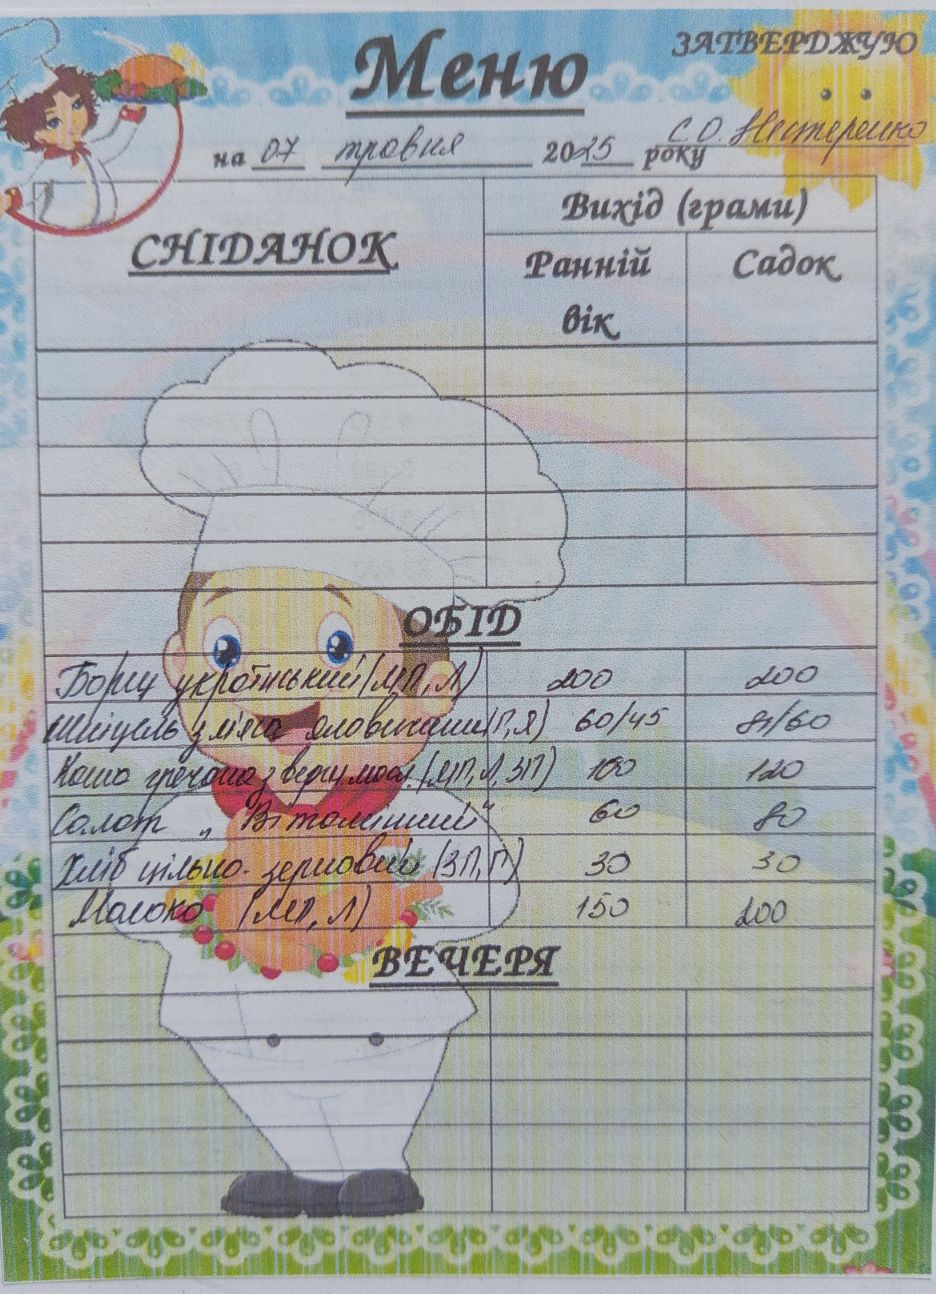 Меню
ЗАТВЕРДЖУЮ
С.О. Нестеренко
на 07 травня 2025 року
СНІДАНОК
Вихід (грами)
Ранній вік
Садок
ОБІД
Борщ український (МП, Л) 200 200
Шніцель з м'яса яловичини (Г, Я) 60/45 81/60
Каша гречана з верш. масл. (МП, Л, ЗП) 100 120
Салат „Вітамінний" 60 80
Хліб цільно-зерновий (ЗП, Г) 30 30
Молоко (МП, Л) 150 200
ВЕЧЕРЯ